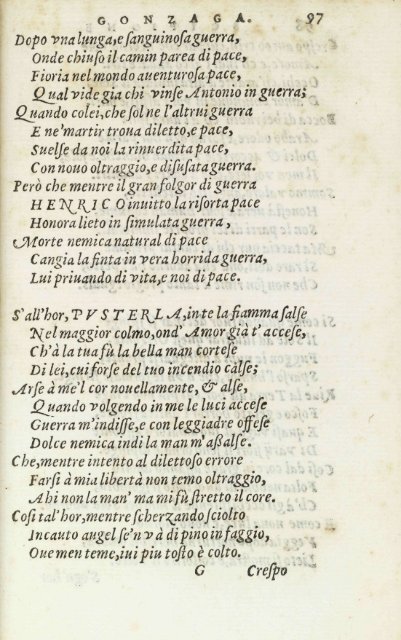 GONZAGA. 97
Dopo vna lunga, e sanguinosa guerra,
Onde chiuso il camin parea di pace,
Fioria nel mondo auenturosa pace,
Qual vide gia chi vinse Antonio in guerra;
Quando colei, che sol ne l'altrui guerra
E ne' martir troua diletto, e pace,
Suelse da noi la rinuerdita pace,
Con nouo oltraggio, e disusata guerra.
Però che mentre il gran folgor di guerra
HENRICO inuitto la risorta pace
Honora lieto in simulata guerra,
Morte nemica natural di pace
Cangia la finta in vera horrida guerra,
Lui priuando di vita, e noi di pace.
S'all'hor, PVSTERLA, in te la fiamma salse
Nel maggior colmo, ond' Amor già t'accese,
Ch'à la tua fù la bella man cortese
Di lei, cui forse del tuo incendio càlse;
Arse à me'l cor nouellamente, & alse,
Quando volgendo in me le luci accese
Guerra m'indisse, e con leggiadre offese
Dolce nemica indi la man m'assalse.
Che, mentre intento al dilettoso errore
Farsi à mia libertà non temo oltraggio,
Ahi non la man' ma mi fù stretto il core.
Cosi tal'hor, mentre scherzando sciolto
Incauto augel se'n và di pino in faggio,
Oue men teme, iui piu tosto è colto.
G Crespo